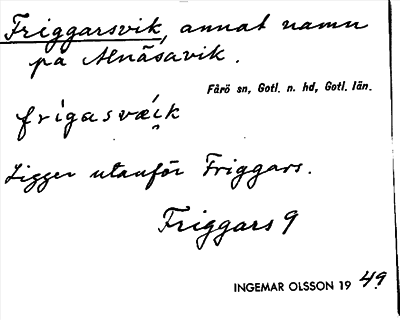 Friggarsvik, annat namn
på Alnäsavik.
Fårö sn, Gotl. n. hd, Gotl. län.
frìgasvæ̀i̯k
Ligger utanför Friggars.
Friggars 9
INGEMAR OLSSON 19 49